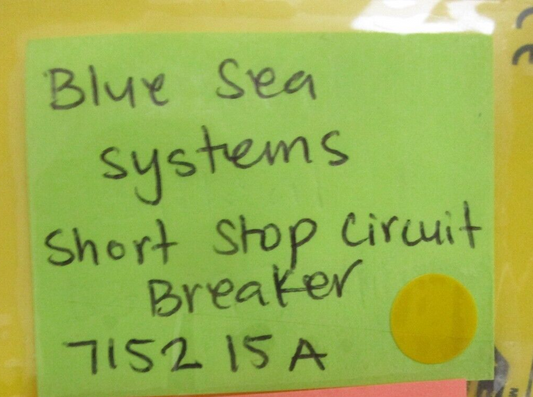 Blue Sea
systems
Short Stop Circuit
Breaker
7152 15A